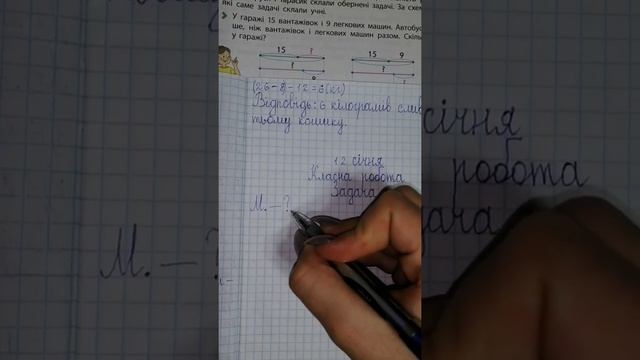 склали обернені задачі. За схе
які саме задачі склали учні.
У гаражі 15 вантажівок і 9 легкових машин. Автобус
ше, ніж вантажівок і легкових машин разом. Скіль
у гаражі?
15 ?
?
9
15 9
?
?
(26-8)-12=6(кг)
Відповідь: 6 кілограмів слив
тьому кошику.
12 січня
Класна робота
Задача
М. – ?